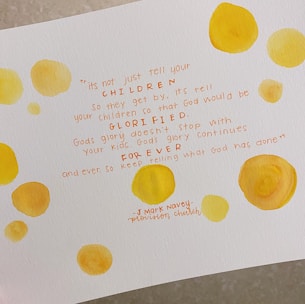 "its not just tell your
CHILDREN
so they get by. its tell
your children so that God would be
GLORIFIED.
Gods glory doesn't stop with
your kids. Gods glory continues
FOREVER
and ever so keep telling what God has done"
-J Mark Navey
church